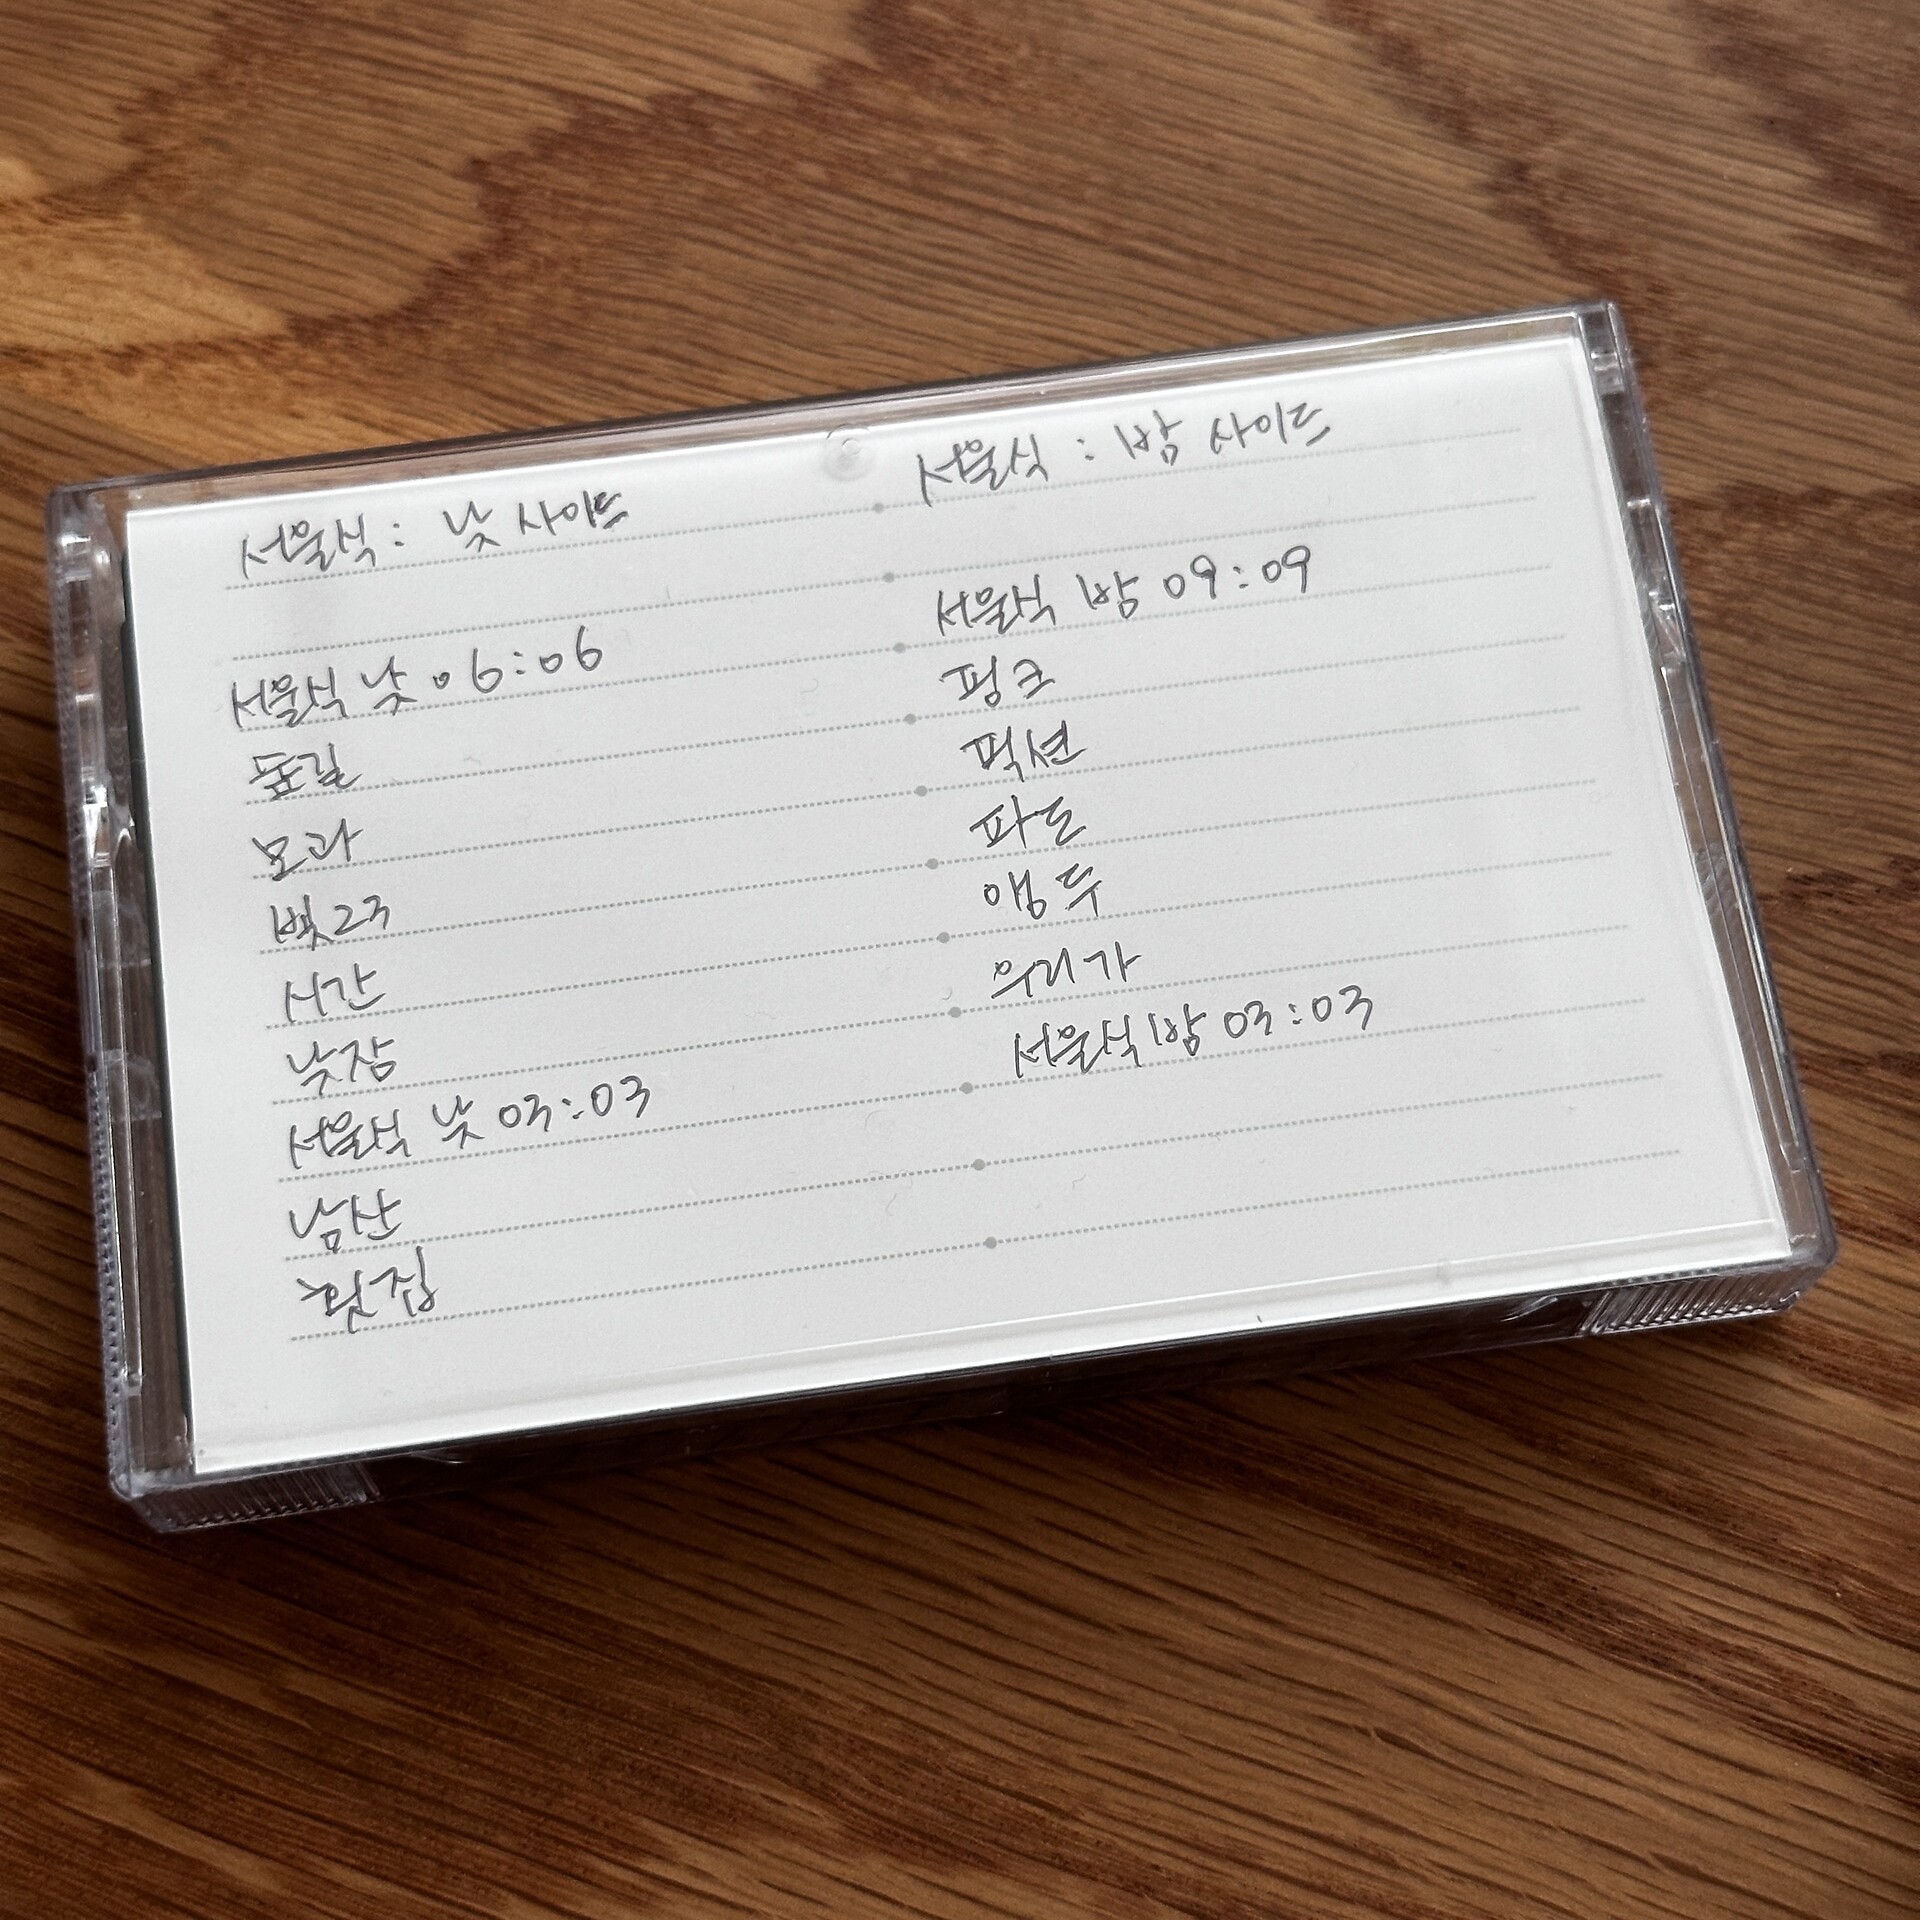 서울식: 낮 사이드
서울식 낮 06:06
숲길
모과
벚꽃
시간
낮잠
서울식 낮 03:03
남산
횟집
서울식 : 밤 사이드
서울식 밤 09:09
핑크
픽션
파도
앵두
우리가
서울식 밤 03:03